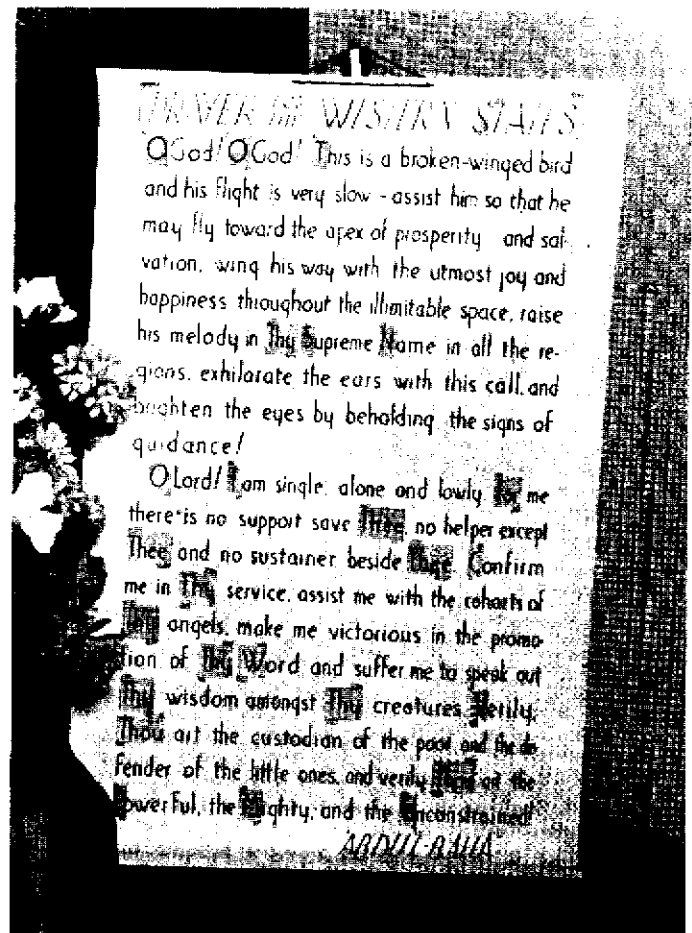 PRAYER FOR WESTERN STATES
O God! O God! This is a broken-winged bird
and his flight is very slow - assist him so that he
may fly toward the apex of prosperity and sal-
vation, wing his way with the utmost joy and
happiness throughout the illimitable space, raise
his melody in Thy Supreme Name in all the re-
gions, exhilarate the ears with this call, and
brighten the eyes by beholding the signs of
guidance!
O Lord! I am single, alone and lowly. For me
there is no support save Thee, no helper except
Thee and no sustainer beside Thee. Confirm
me in Thy service, assist me with the cohorts of
Thy angels, make me victorious in the promo-
tion of Thy Word and suffer me to speak out
Thy wisdom amongst Thy creatures. Verily,
Thou art the custodian of the poor and the de-
fender of the little ones, and verily Thou art the
Powerful, the Mighty, and the Unconstrained!
ABDUL-BAHA